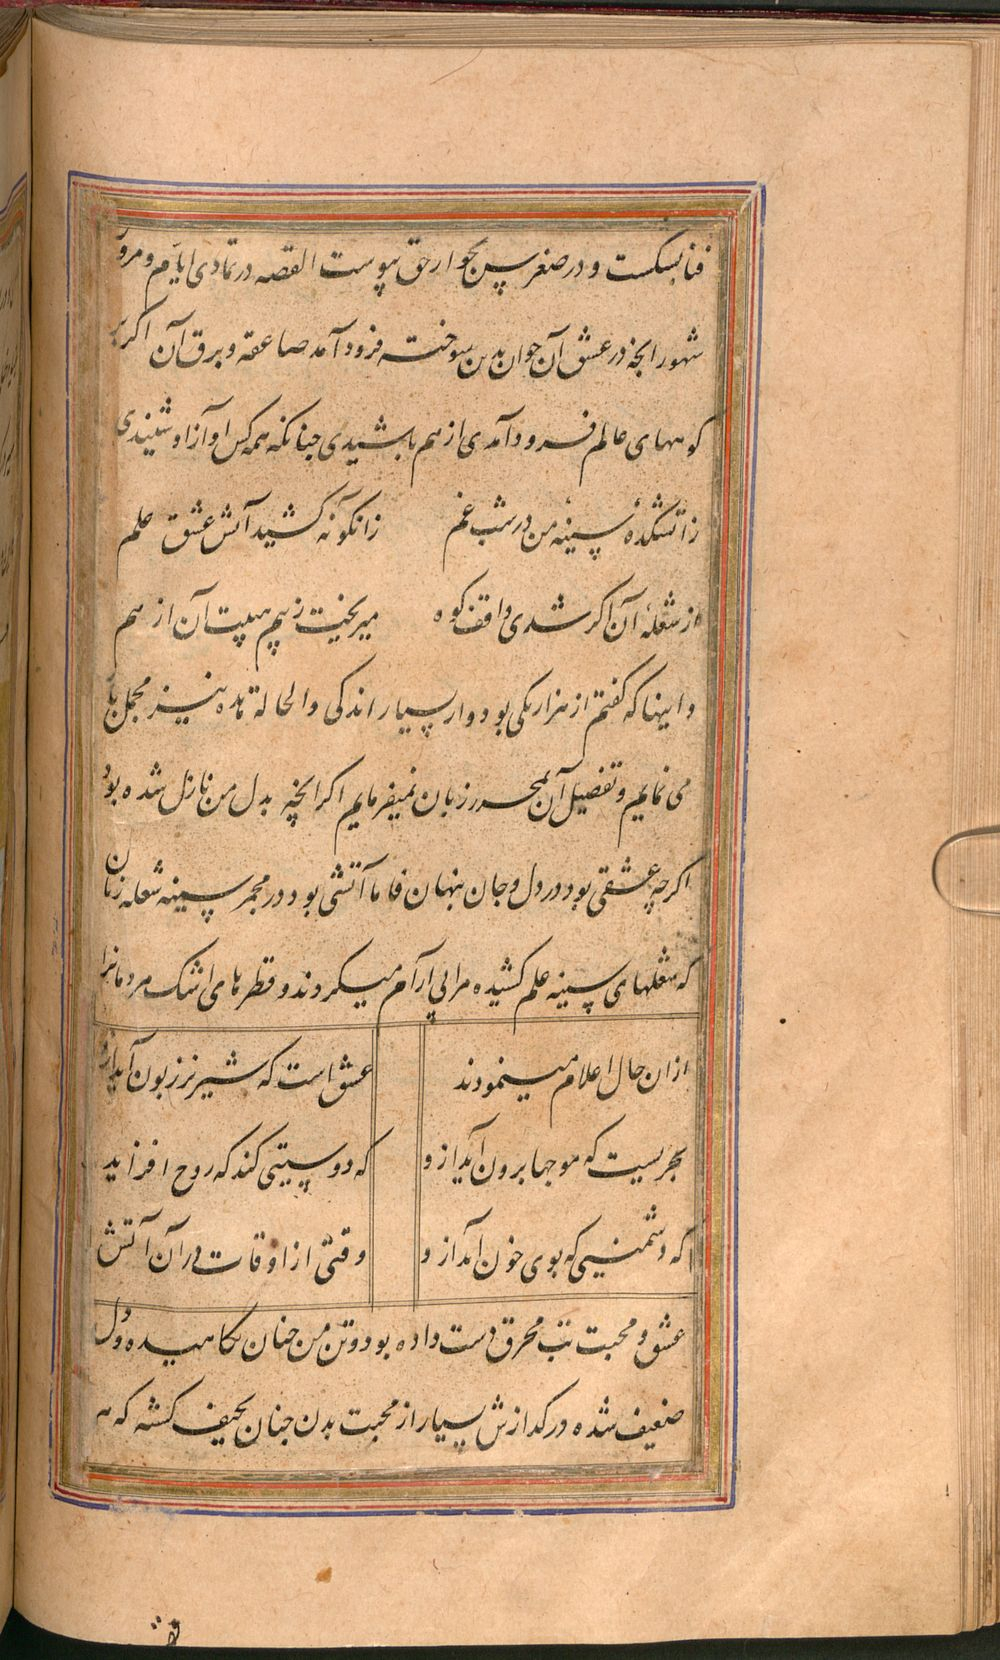 فنا بسکست و در صغر سن بجوار حق پیوست القصه در تمادی ایام و مرور
شهور انچه در عشق آن جوان بدین سوخته فرود آمد صاعقه و برق آن اگر بر
کوههای عالم فرود آمدی از هم پاشیدی چنانکه همه کس آواز او شنیدی
زاتشکدهٔ سینهٔ من در شب غم زانگونه کشید آتش عشق علم
از شعلهٔ آن اگر شدی واقف کوه میریخت ز بیم هیبت آن از هم
و اینها که گفتم از هزار یکی بود و از بسیار اندکی و الحاله هذه نیز مجمل
می نمایم و تفصیل آن بمحرر زبان نمیفرمایم اگر انچه بدل من نازل شده بود
اگرچه عشقی بود در دل و جان پنهان فاما آتشی بود در مجمر سینه شعله زنان
که شعلهای سینه علم کشیده مرا بی آرام میکردند و قطرهای اشک مردمانرا
ازان حال اعلام مینمودند عشق است که شیر نر زبون آید ازو
بحریست که موجها برون آید ازو که دوستیی کند که روح افزاید
که دشمنیی که بوی خون آید ازو وقتی از اوقات در آن آتش
عشق و محبت تب محرق دست داده بود و تن من چنان کاهیده و دل
ضعیف شده در گدازش بسیار از محبت بدن چنان نحیف گشته که